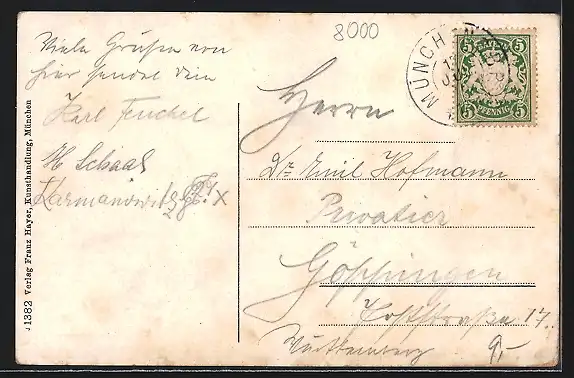 8000
Viele Grüße von
hier sendet dein
Karl Feuchel
H Schaal
MÜNCHEN
BAYERN
5 5
5 5
PFENNIG
Herrn
Dr. Emil Hofmann
Privatier
Göppingen
Poststraße 17.
Württemberg
9,-
J 1382 Verlag Franz Hayer, Kunsthandlung, München